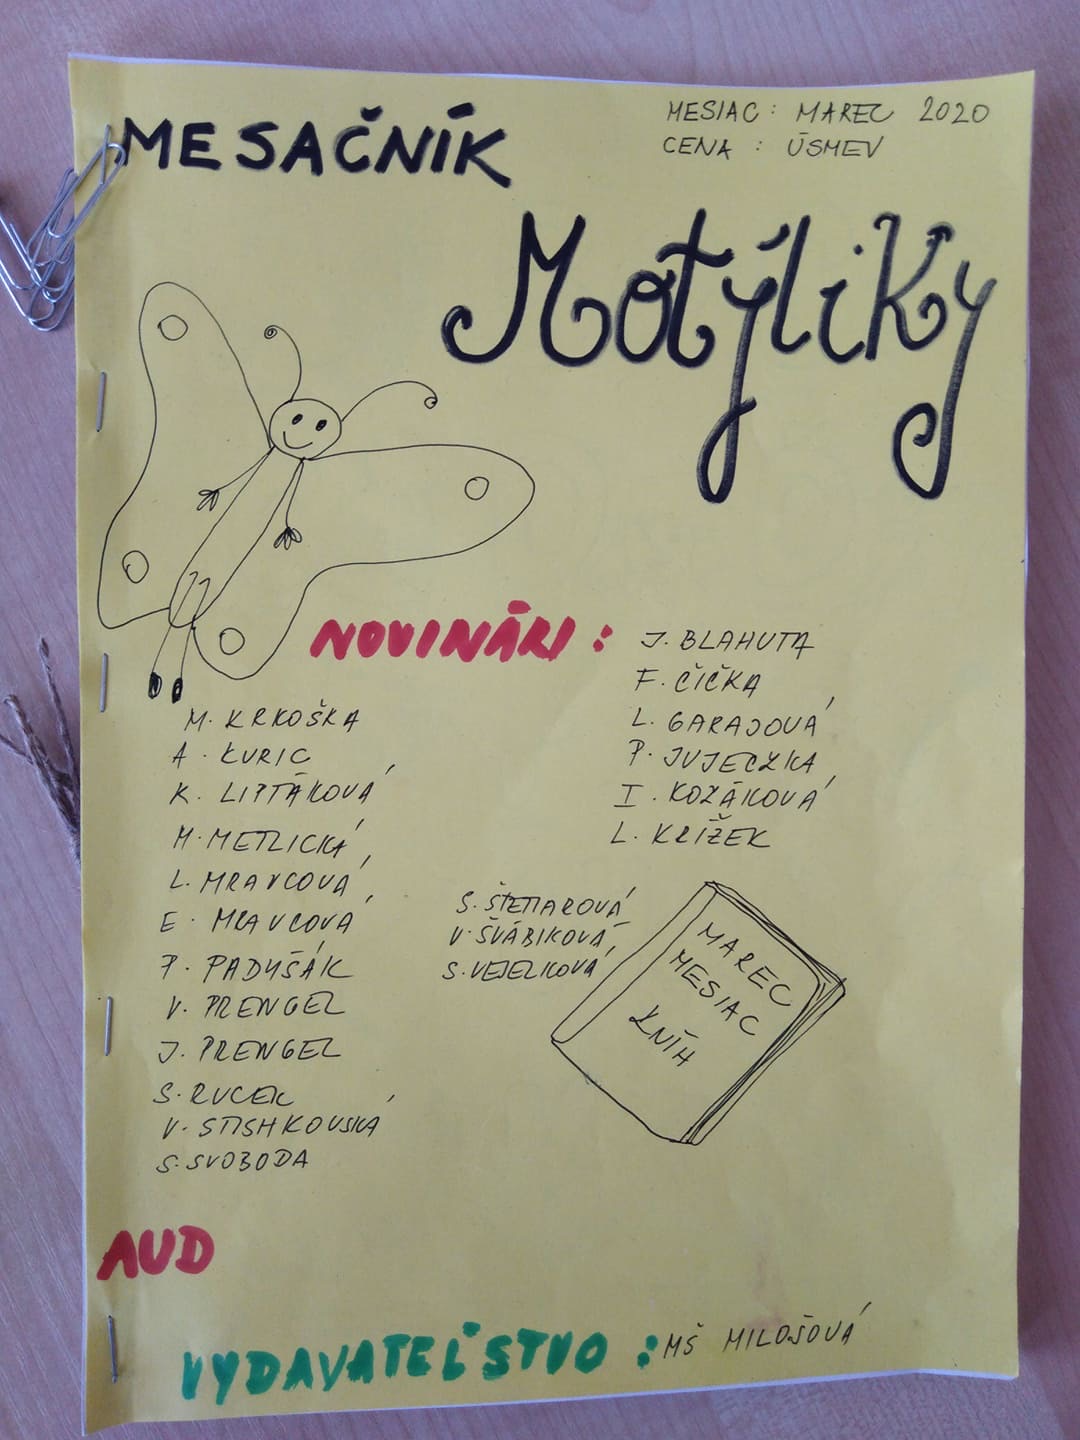 MESAČNÍK
MESIAC: MAREC 2020
CENA : ÚSMEV
Motýliky
NOVINÁRI:
J. BLAHUTA
F. ČIČKA
L. GARAJOVÁ
P. JUJECZKA
I. KOZÁKOVÁ
L. KRÍŽEK
M. KRKOŠKA
A. KURIC
K. LIPTÁKOVÁ
M. METLICKÁ
L. MRAVCOVÁ
E. MRAVCOVÁ
P. PADYŠÁK
V. PRENGEL
J. PRENGEL
S. RUCEK
V. STISHKOVSKÁ
S. SVOBODA
S. ŠTEFIAROVÁ
V. ŠVÁBIKOVÁ
S. VEJELKOVÁ
MAREC
MESIAC
KNÍH
AUD
VYDAVATEĽSTVO : MŠ MILOŠOVÁ